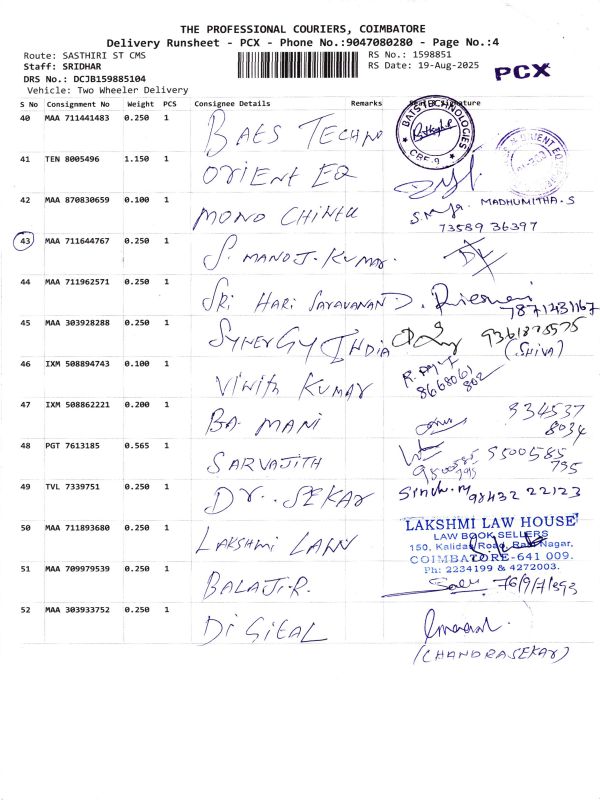 THE PROFESSIONAL COURIERS, COIMBATORE
Delivery Runsheet - PCX - Phone No.:9047080280 - Page No.:4
Route: SASTHIRI ST CMS
RS No.: 1598851
Staff: SRIDHAR
RS Date: 19-Aug-2025
PCX
DRS No.: DCJB159885104
Vehicle: Two Wheeler Delivery
S No Consignment No Weight PCS Consignee Details Remarks Signature
40 MAA 711441483 0.250 1 BATS TECHNO
BATS TECHNOLOGIES
CBE-9
41 TEN 8005496 1.150 1 ORIENT EQ
42 MAA 870830659 0.100 1 MONO CHINTU
MADHUMITHA.S
73589 36397
43 MAA 711644767 0.250 1 S. MANOJ. KUMAR.
44 MAA 711962571 0.250 1 SRI HARI SARAVANAN D.
7871431167
45 MAA 303928288 0.250 1 SYNERGY INDIA
(SHIVA)
46 IXM 508894743 0.100 1 VINITH KUMAR
8668061
802
47 IXM 508862221 0.200 1 BA. MANI
934537
8034
48 PGT 7613185 0.565 1 SARVAJITH
9500585
795
9500585
795
49 TVL 7339751 0.250 1 DR. SEKAR
98432 22123
50 MAA 711893680 0.250 1 LAKSHMI LAW
LAKSHMI LAW HOUSE
LAW BOOK SELLERS
150, Kalidas Road, Ram Nagar,
COIMBATORE-641 009.
Ph: 2234199 & 4272003.
51 MAA 709979539 0.250 1 BALAJI.R.
52 MAA 303933752 0.250 1 DIGITAL
(CHANDRASEKAR)